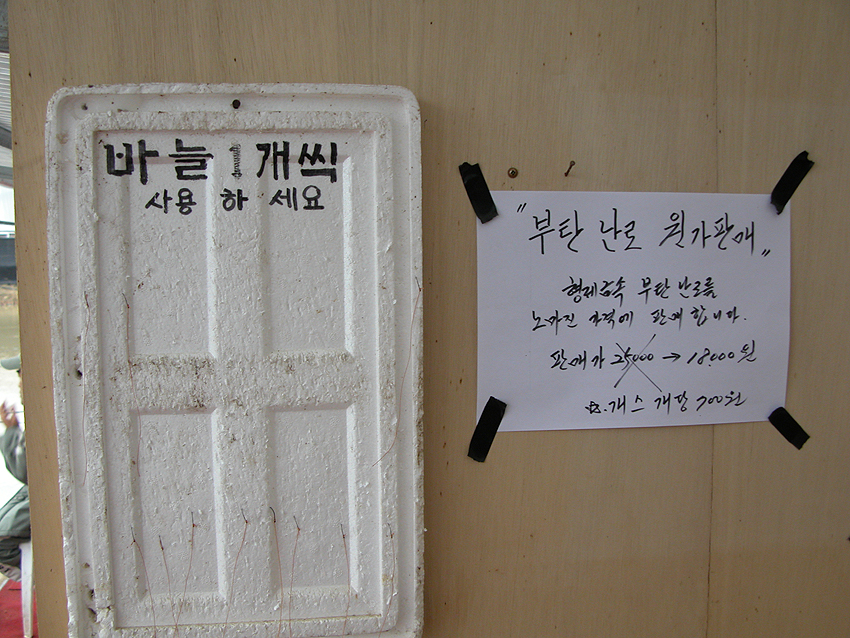 바늘 1개씩
사용하세요
"부탄 난로 원가판매"
형제금속 부탄난로를
노마진 가격에 판매합니다.
판매가 25,000 → 18,000원
☆.개스 개당 700원